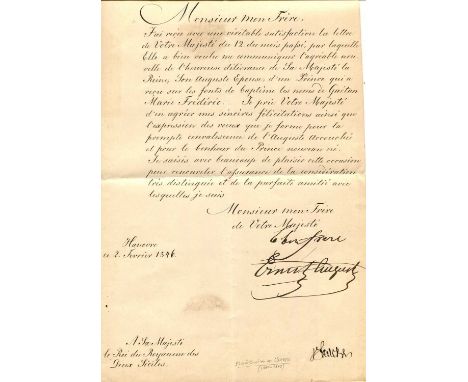 Monsieur mon Frère.
J'ai reçu avec une véritable satisfaction la lettre
de Votre Majesté du 12 du mois passé, par laquelle
Elle a bien voulu me communiquer l'agréable nou-
velle de l'heureuse délivrance de Sa Majesté la
Reine, Son Auguste Epouse, d'un Prince qui a
reçu sur les fonts de baptême les noms de Gaëtan
Marie Frédéric. Je prie Votre Majesté
d'en agréer mes sincères félicitations ainsi que
l'expression des vœux que je forme pour la
prompte convalescence de l'Auguste Accouchée
et pour le bonheur du Prince nouveau né.
Je saisis avec beaucoup de plaisir cette occasion
pour renouveler l'assurance de la considération
très distinguée et de la parfaite amitié avec
lesquelles je suis
Monsieur mon Frère
de Votre Majesté
le bon frère
Ernest Auguste
Hanovre
ce 2. Février 1846.
A Sa Majesté
le Roi du Royaume des
Deux Siciles.